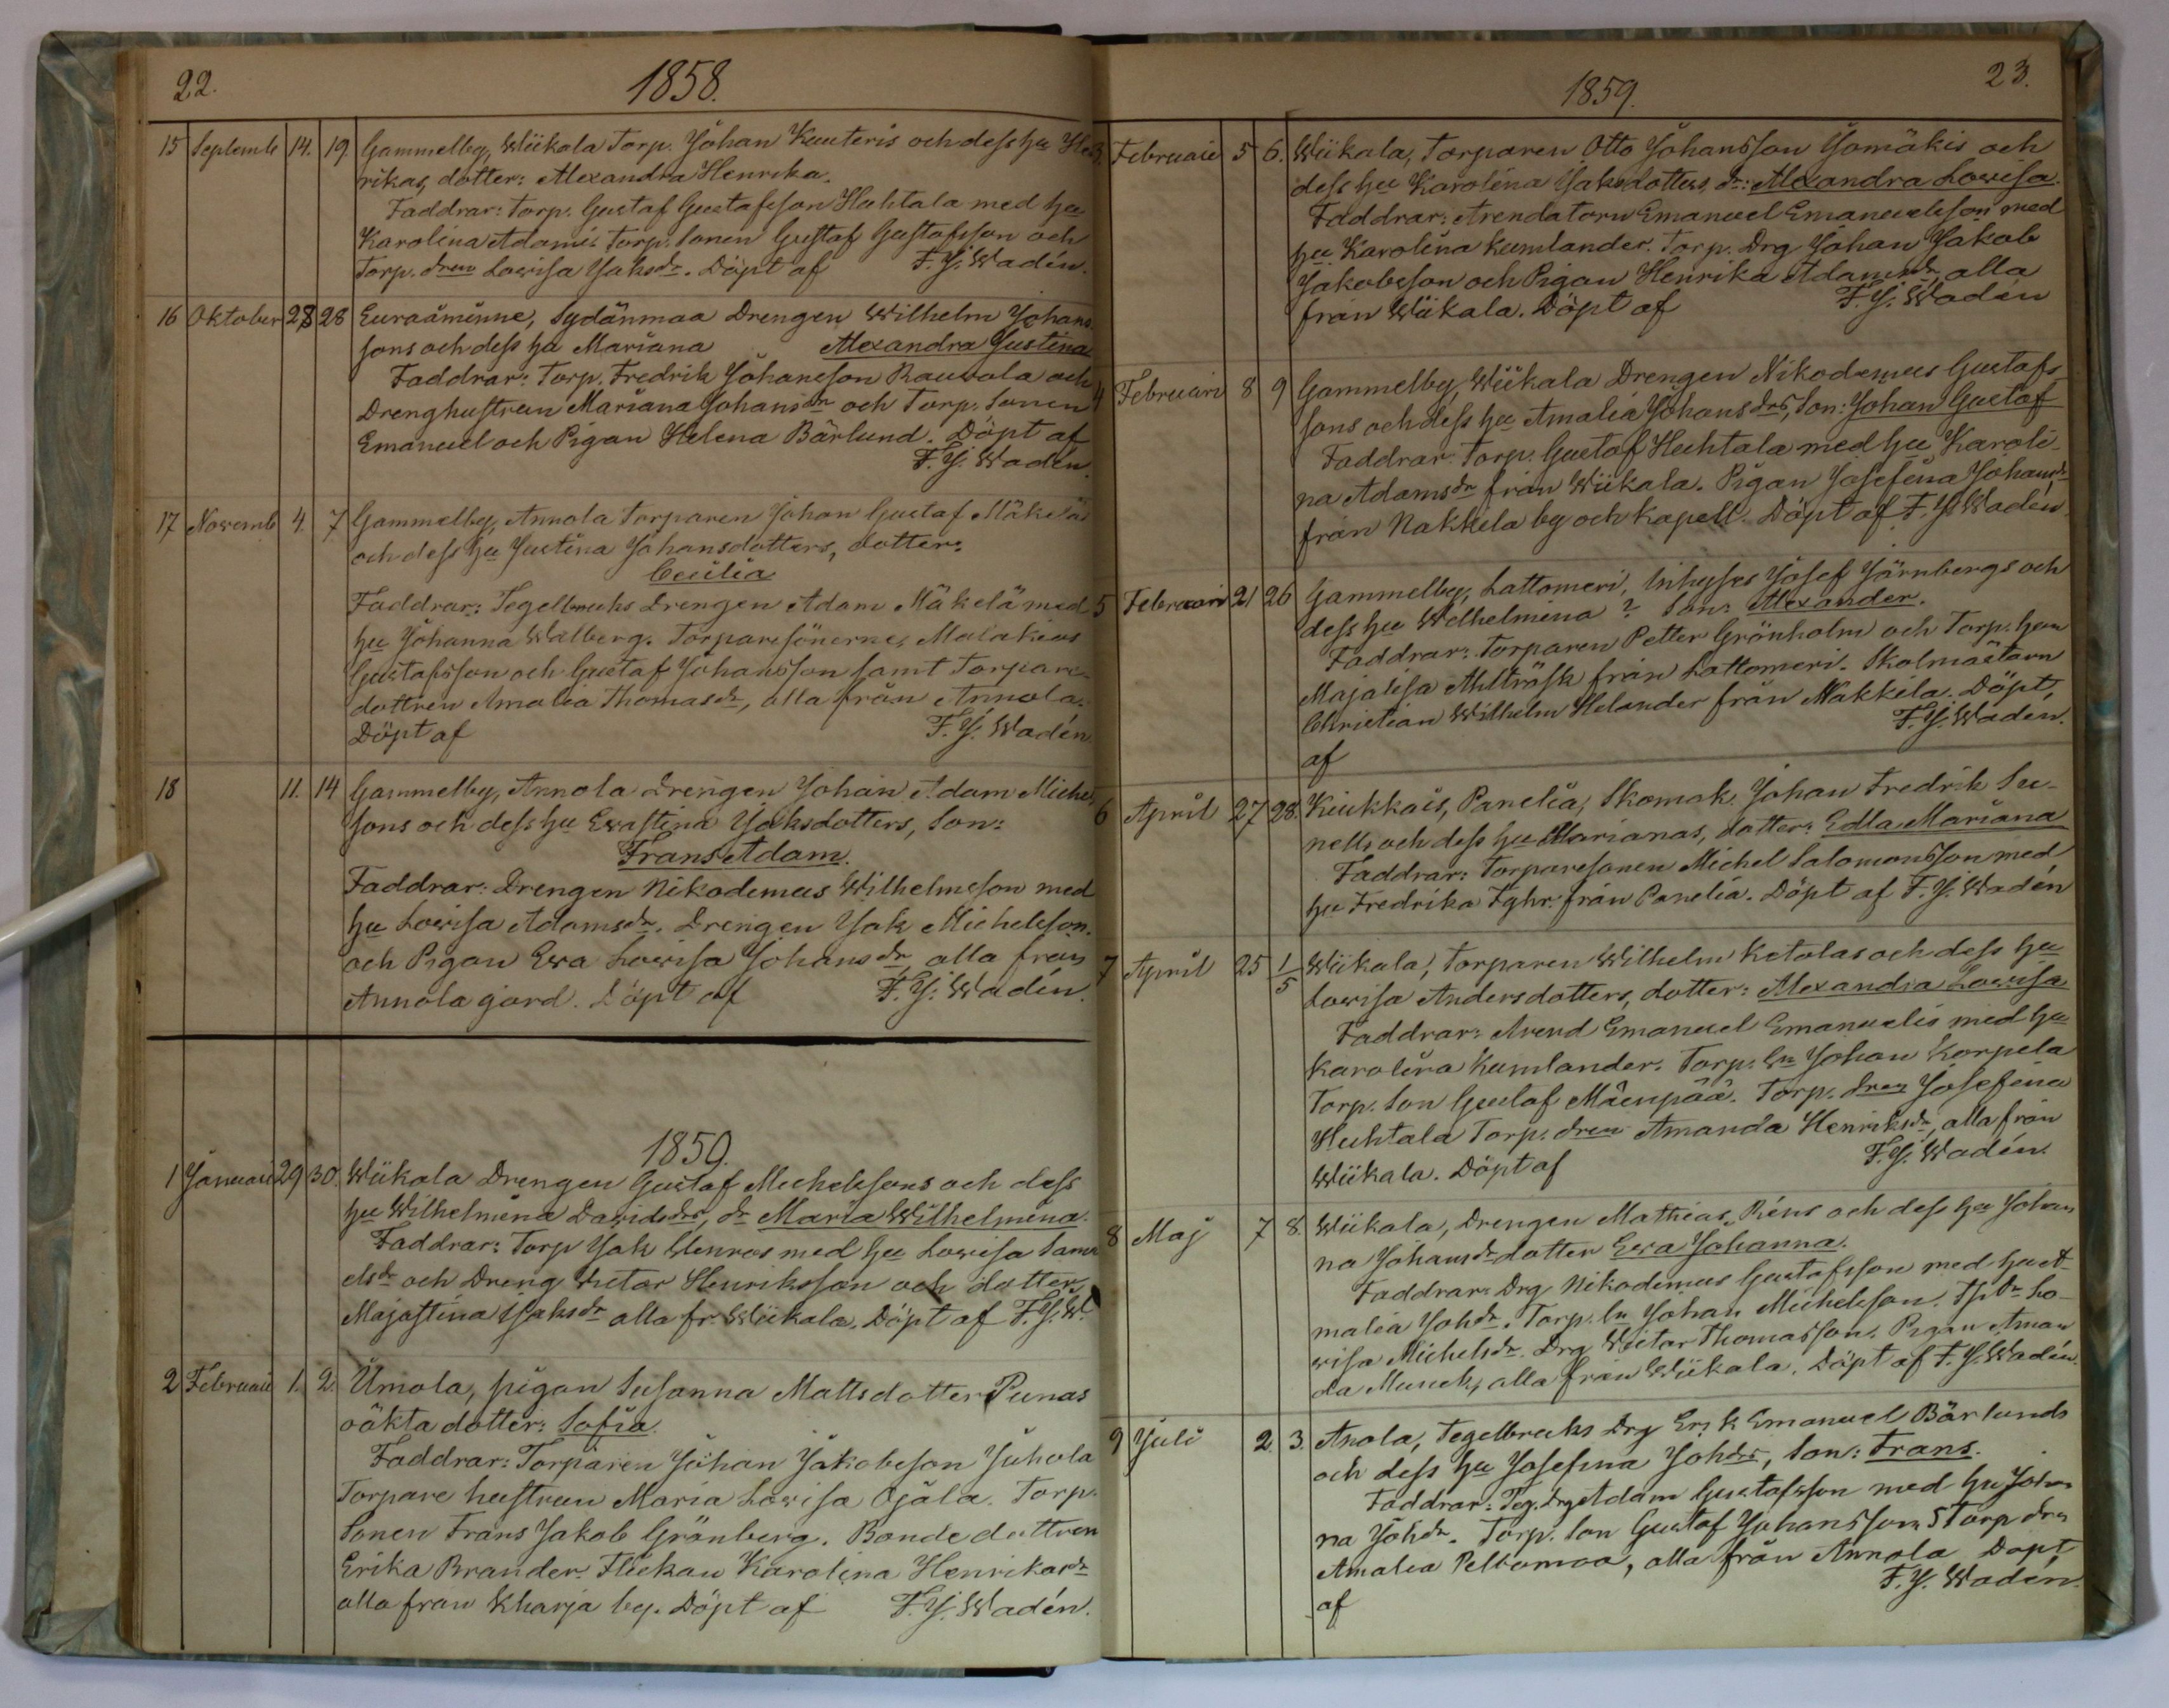 22.
1858.
15 Septemb 14. 19. Gammelby, Wiikala Torp. Johan Kuuteris och dess hu Hen
rikas, dotter: Alexandra Henrika.
Faddrar: Torp. Gustaf Gustafsson Huhtala med hu
Karolina Adams. Torp. Sonen Gustaf Gustafsson och
Torp. dren Lovisa Jaksdr. Döpt af F. J. Wadén.
16 Oktober 28 28 Euraåminne, Sydänmaa Drengen Wilhelm Johans
sons och dess hu Mariana Alexandra Justina
Faddrar: Torp. Fredrik Johansson Rauvola och
Drenghustrun Mariana Johansdr och Torp. Sonen
Emanuel och Pigan Helena Bärlund. Döpt af
F. J. Wadén.
17 Novemb 4. 7 Gammelby, Annola Torparen Johan Gustaf Mäkelä
och dess hu Justina Johansdotters, dotter:
Cecilia
Faddrar: Tegelbruks Drengen Adam Mäkelä med
hu Johanna Walberg. Torparesönerne, Malakias
Gustafsson och Gustaf Johansson samt Torpare-
dottren Amalia Thomasdr, alla från Annola.
Döpt af F. J. Wadén
18 11. 14 Gammelby, Annola Drengen Johan Adam Michels
sons och dess hu Ewastina Jaksdotters, Son:
Frans Adam.
Faddrar: Drengen Nikodemus Wilhelmsson med
hu Lovisa Adamsdr. Drengen Jak Michelsson.
och Pigan Ewa Lovisa Johansdr alla från
Annola gård. Döpt af F. J. Wadén.
1859.
1 Januari 29 30. Wiikala Drengen Gustaf Michelssons och dess
hu Wilhelmina Davidsdrs, dr Maria Wilhelmina.
Faddrar: Torp Jak Stenroos med hu Lovisa Samu
elsdr och Dreng Victor Henriksson och dotter
Majastina Isaksdr alla fr. Wiikala. Döpt af F. J. W.
2 Februari 1. 2. Umola, pigan Susanna Mattsdotter Punas
oäkta dotter: Sofia.
Faddrar: Torparen Johan Jakobsson Juhola
Torpare hustrun Maria Lovisa Ojala. Torp.
Sonen Frans Jakob Grönberg. Bonde dottren
Erika Brander. Flickan Karolina Henriksdr
alla från Kharja by. Döpt af F. J. Wadén.
23.
1859.
3. Februari 5 6. Wiikala, Torparen Otto Johansson Jomäkis och
dess hu Karolina Jaksdotters, dr: Alexandra Lovisa.
Faddrar: Arendatorn Emanuel Emanuelsson med
hu Karolina Kumlander. Torp. Drg Johan Jakob
Jakobsson och Pigan Henrika Adamsdr, alla
från Wiikala. Döpt af F. J. Wadén
4 Februari 8 9 Gammelby, Wiikala Drengen Nikodemus Gustafs
sons och dess hu Amalia Johansdrs, Son: Johan Gustaf
Faddrar Torp. Gustaf Huhtala med hu Karoli-
na Adamsdr från Wiikala. Pigan Josefina Johansdr
från Nakkila by och kapell. Döpt af F. J. Wadén
5 Februari 21 26 Gammelby, Lattomeri, Inhyses Josef Järnbergs och
dess hu Welhelmina ? Son: Alexander.
Faddrar: Torparen Petter Grönholm och Torp. hun
Majalisa Ahlträsk från Lattomeri. Skolmästarn
Christian Wilhelm Helander från Nakkila. Döpt,
af F. J. Wadén.
6 April 27 28. Kiukkais, Panelia, Skomak. Johan Fredrik Su-
nells och dess hu Marianas, dotter: Edla Mariana
Faddrar: Torparesonen Michel Salomonsson med
hu Fredrika Fghr. från Panelia. Döpt af F. J. Wadén
7 April 25 1/5 Wiikala, Torparen Wilhelm Ketolas och dess hu
Lovisa Andersdotters, dotter: Alexandra Lovisa
Faddrar: Arend Emanuel Emanuelis med hu
Karolina Kumlander. Torp. Sn Johan Korpela
Torp. Son Gustaf Mäenpää. Torp. dren Josefina
Huhtala Torp. dren Amanda Henriksdr, alla från
Wiikala. Döpt af F. J. Wadén.
8 Maj 7 8. Wiikala, Drengen Mathias Réns och dess hu Johan
na Johansdr dotter Ewa Johanna.
Faddrar: Drg Nikodemus Gustafsson med hu A-
malia Johdr. Torp. Sn Johan Michelsson. Tpdr Lo-
visa Michelsdr. Drg Victar Thomasson. Pigan Aman
da Munck, alla från Wiikala. Döpt af F. J. Wadén.
9 Juli 2. 3. Anola, Tegelbruks Drg Erik Emanuel Bärlunds
och dess hu Josefina Johdrs, Son: Frans.
Faddrar: Teg. drg Adam Gustafsson med hu Johan
na Johdr. Torp. Son Gustaf Johansson, Torp dren
Amalia Peltomaa, alla från Annola Döpt
af F. J. Wadén.